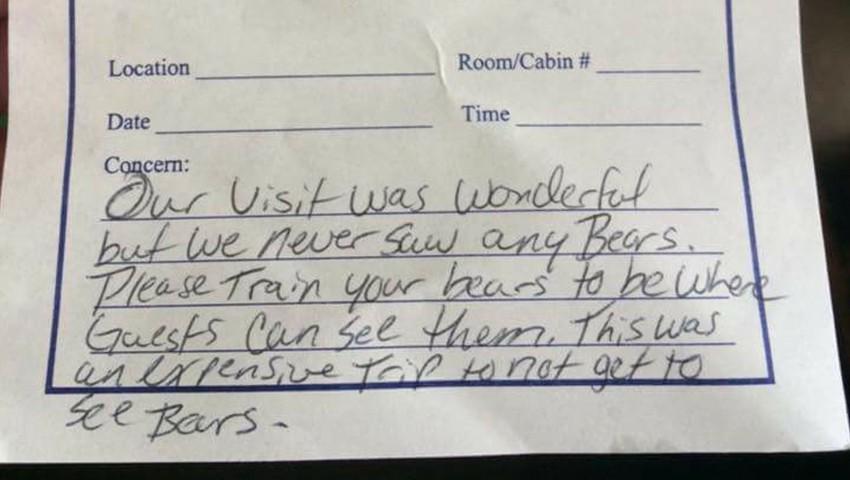 Location Room/Cabin #
Date Time
Concern:
Our Visit was Wonderful
but we never saw any Bears.
Please Train your bears to be where
Guests Can see them. This was
an expensive Trip to not get to
see Bears.